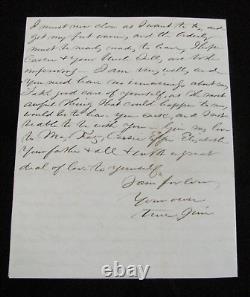 I must now close as I want to try and
get my feet warm, and the orderly
must be ready, to leave, I hope
Carrie & your Uncle Bill, are both
improving I am very well, and
You need have no uneasiness about me
Take good care of yourself, as the most
awful thing that could happen to me
would be to have you sick, and I not
be able to be with you Give my love
to Mr. Carrie Effie Elizabeth
Your father & all & with a great
deal of love to yourself,
I am for ever
Your own
true Jim